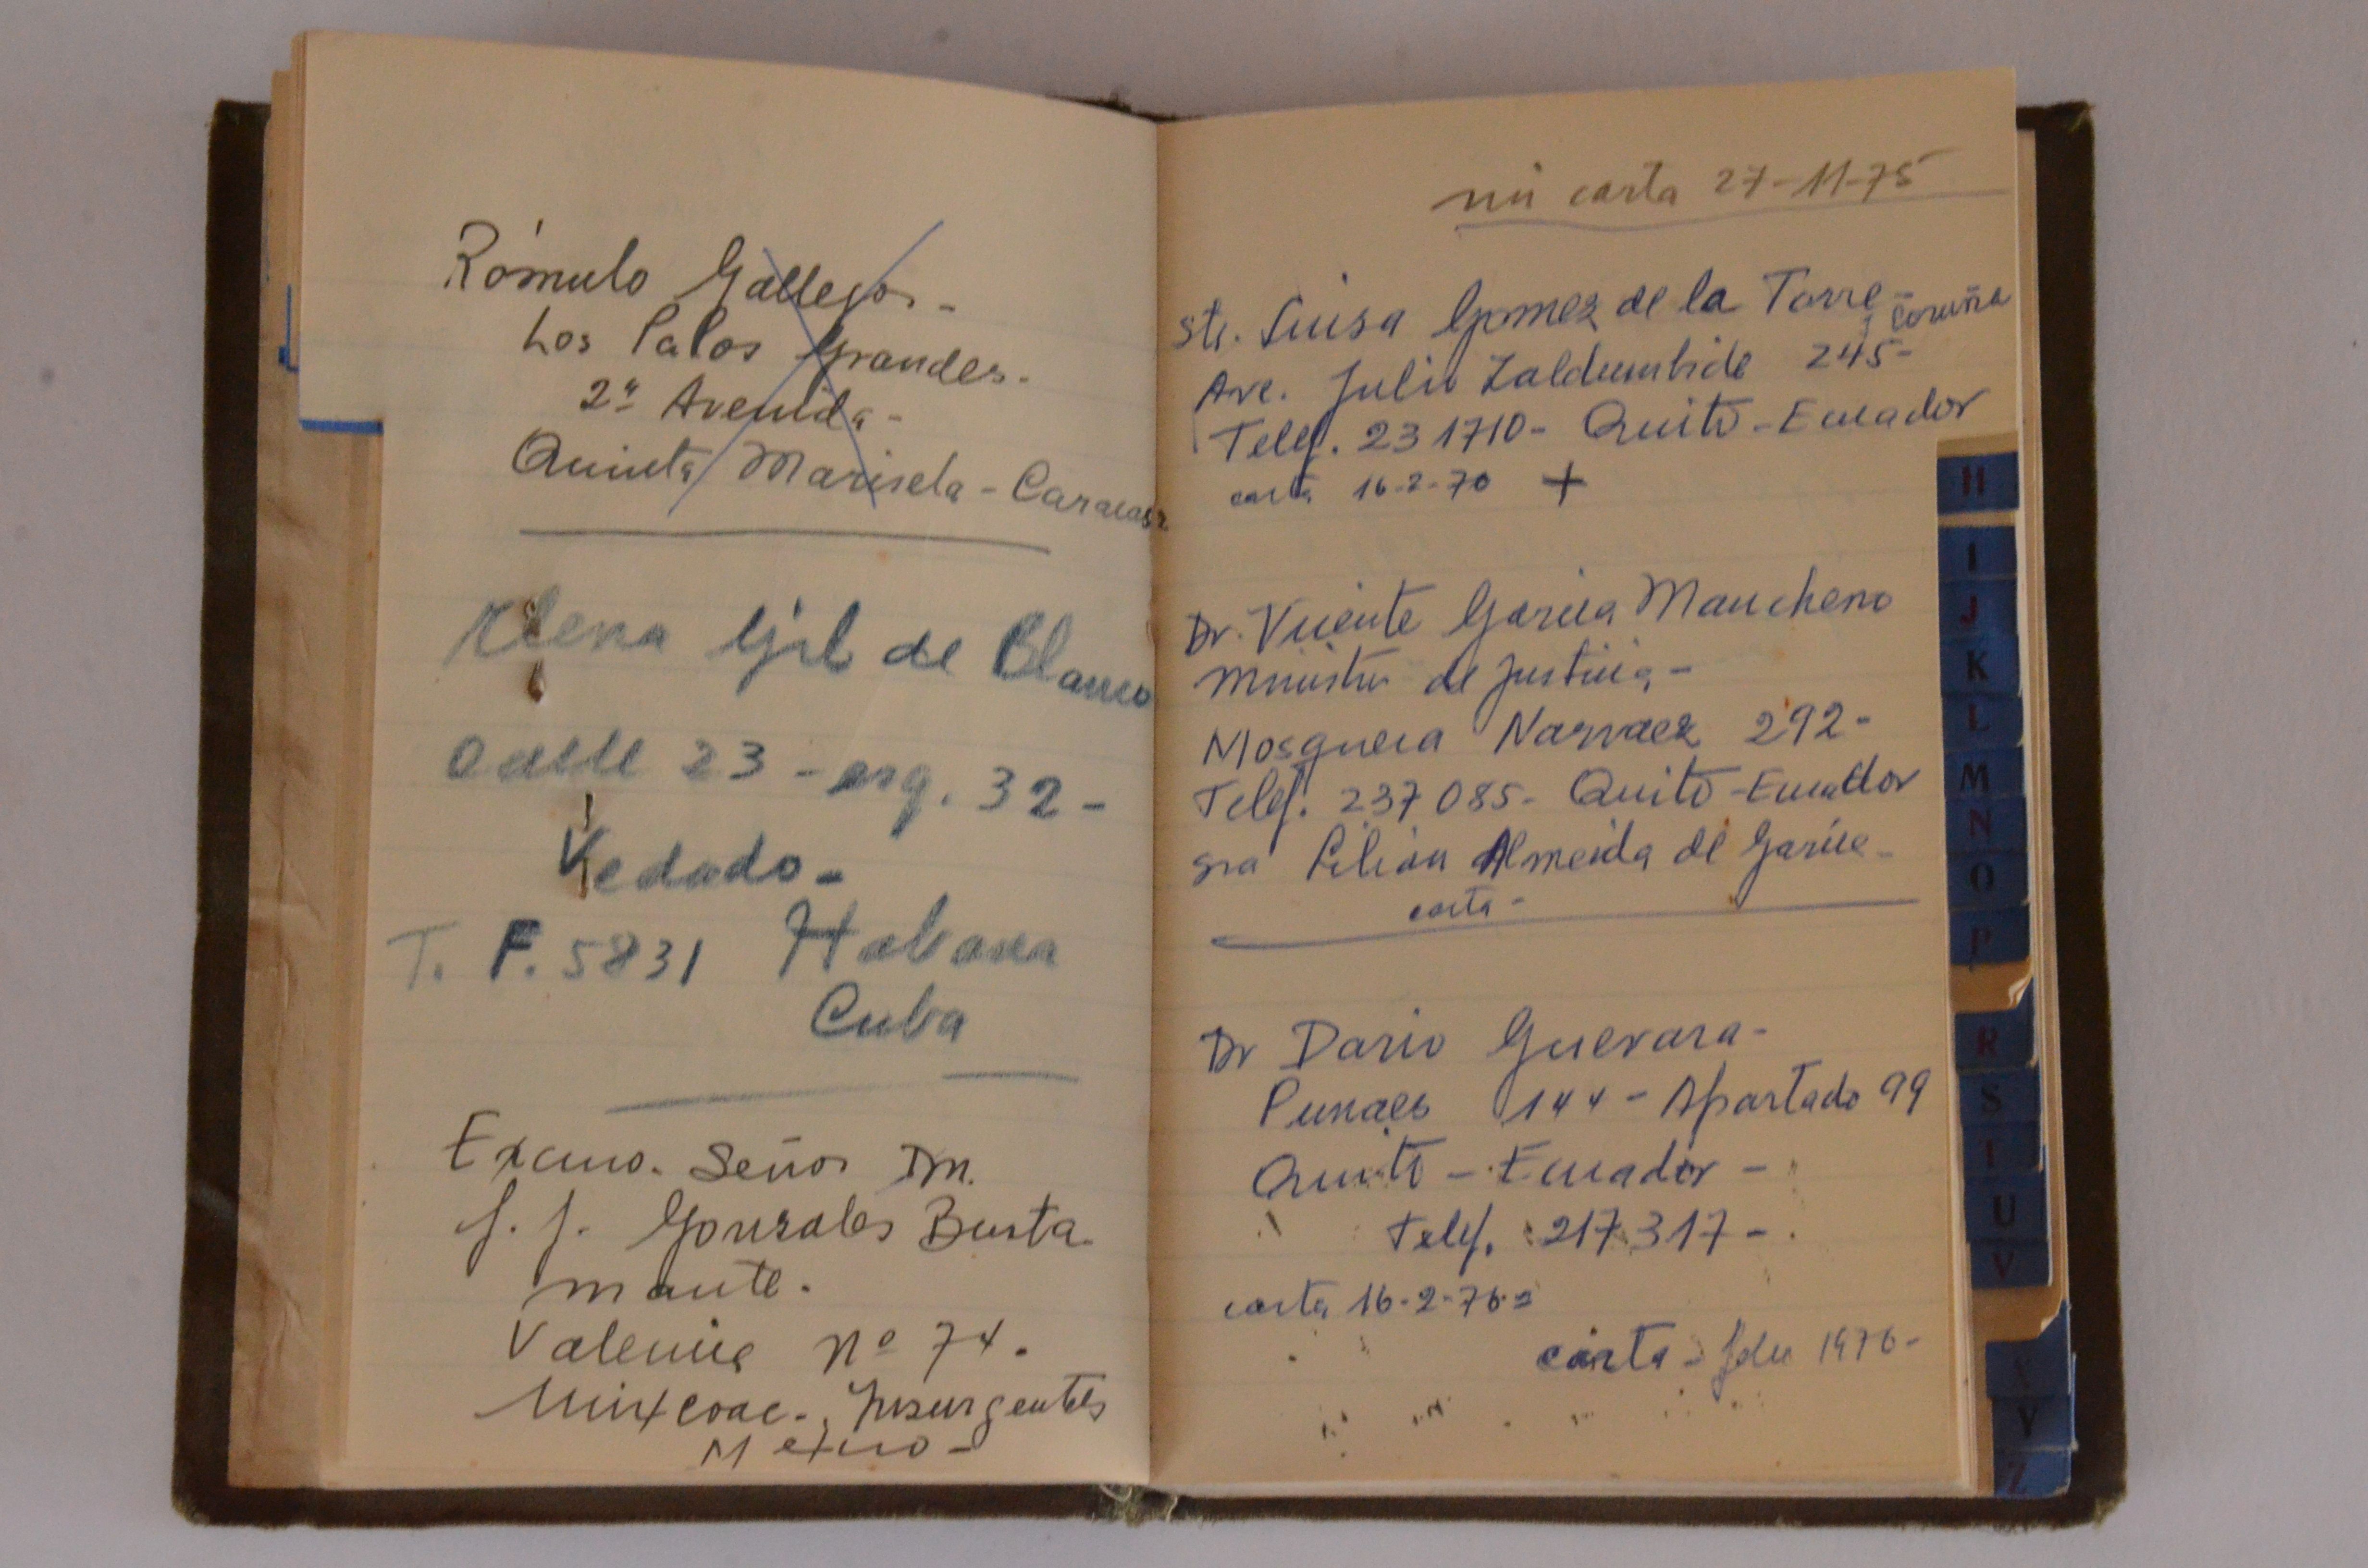 Rómulo Gallegos-
Los Palos Grandes.
2ª Avenida-
Quinta Marisela - Caracas
Elena Gil de Blanco
Calle 23 - esq. 32-
Vedado-
T. F. 5831 Habana
Cuba
Excmo. Señor Dn.
J. J. Gonzales Busta-
mante.
Valencia Nº 74.
Mixcoac-, Insurgentes
Mexico-
mi carta 27-11-75
Luisa Gomez de la Torre-
y Coruña
Ave. Julio Zaldumbide 245-
Telef. 231710- Quito-Ecuador
carta 16-2-70 +
Dr. Vicente Garcia Mancheno
Ministro de Justicia-
Mosquera Narvaez 292-
Telef. 237085- Quito-Ecuador
Sra Lilian Almeida de Garcia-
carta-
Dr Dario Guevara-
144 - Apartado 99
Quito - Ecuador -
Telef. 217317-
carta 16-2-76
carta - 1976-
H
I
J
K
L
M
N
O
P
R
S
U
V
Y
Z